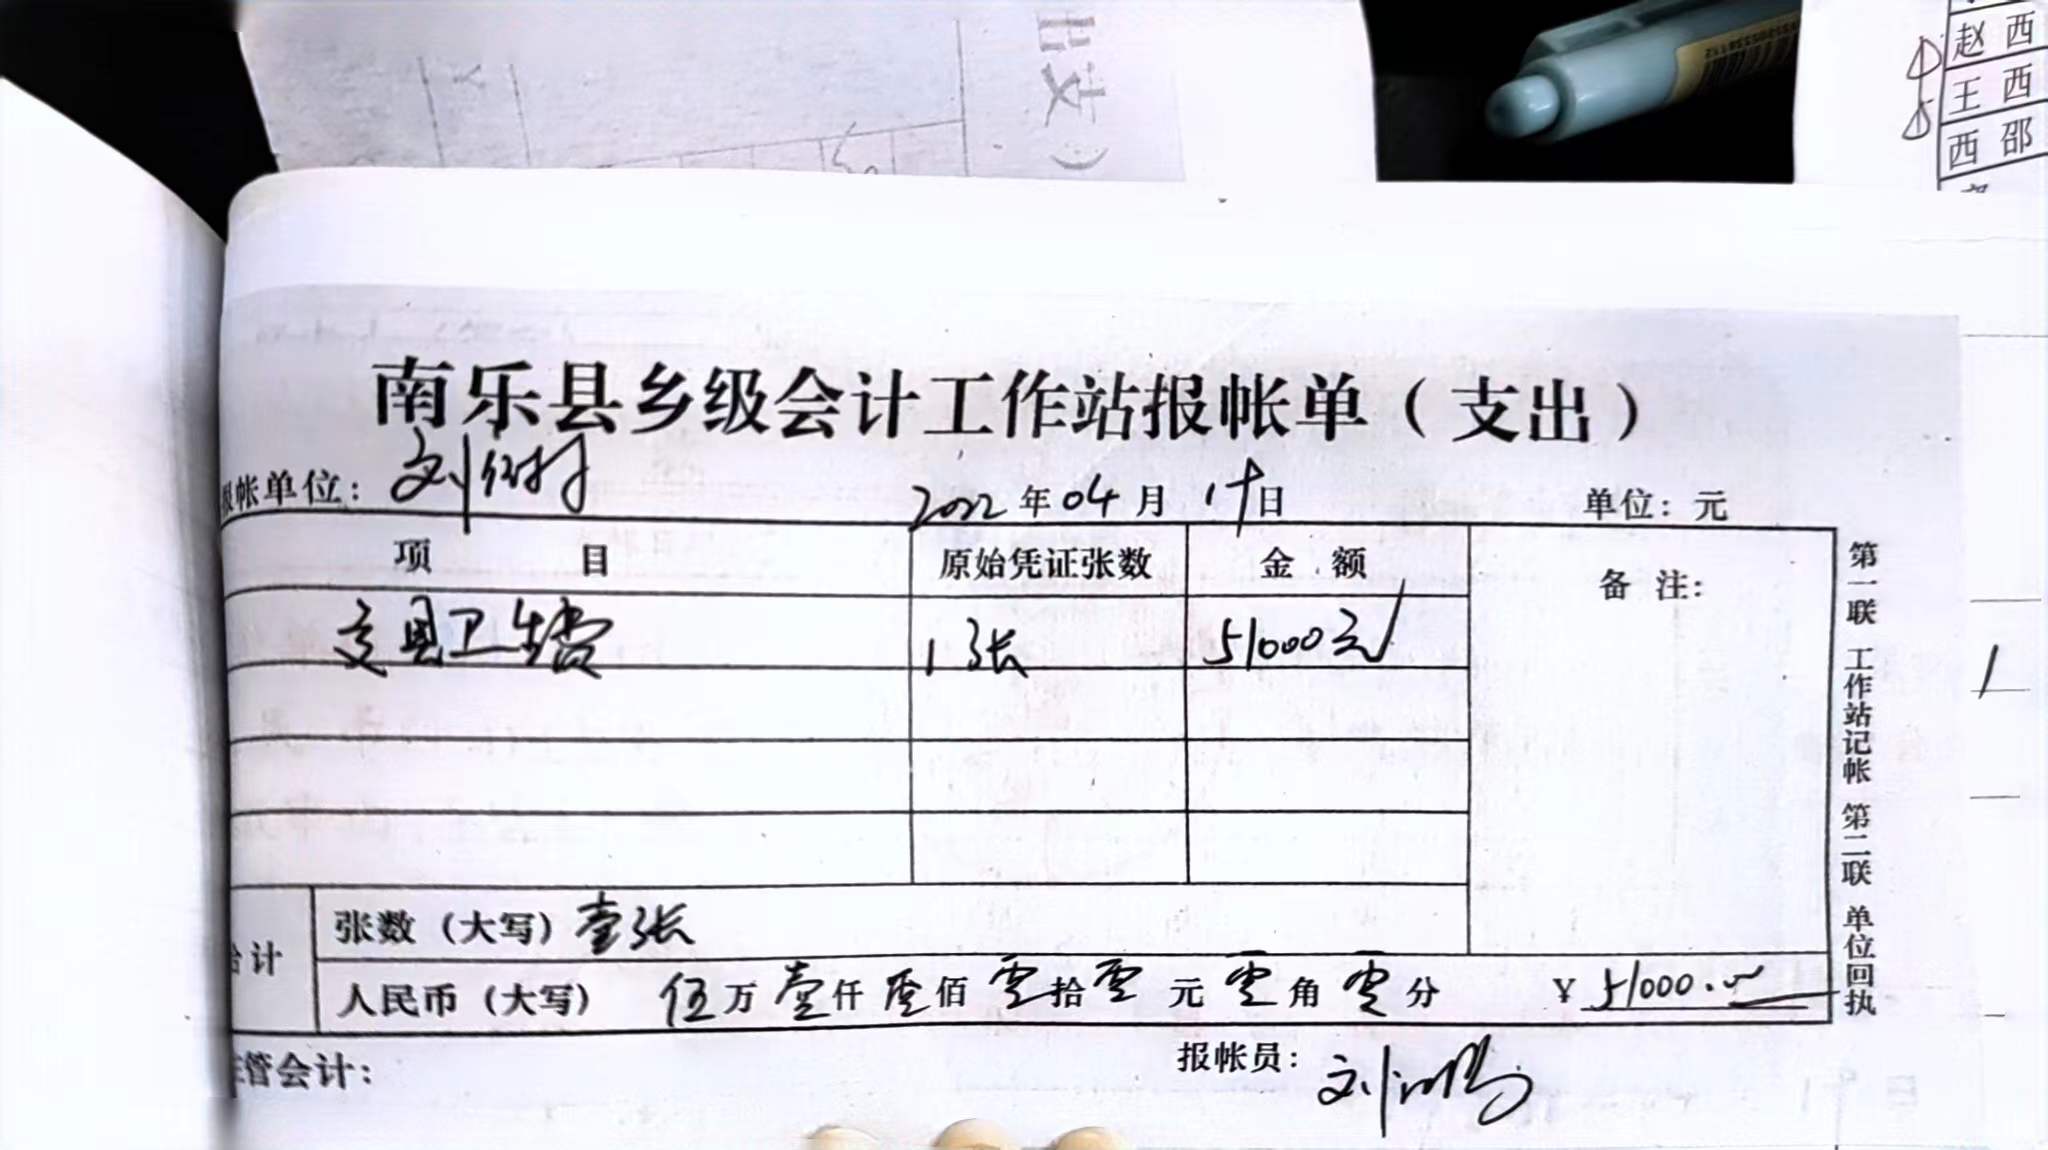 出支）
赵 西
王 西
西 邵
南乐县乡级会计工作站报帐单（支出）
报帐单位：刘 2022年04月19日 单位：元
项 目 原始凭证张数 金 额 备 注：
支县卫生费 1张 51000元
合计 张数（大写）壹张
人民币（大写） 伍万壹仟零佰零拾零元零角零分 ￥51000.00
主管会计： 报帐员：刘
第一联 工作站记帐 第二联 单位回执